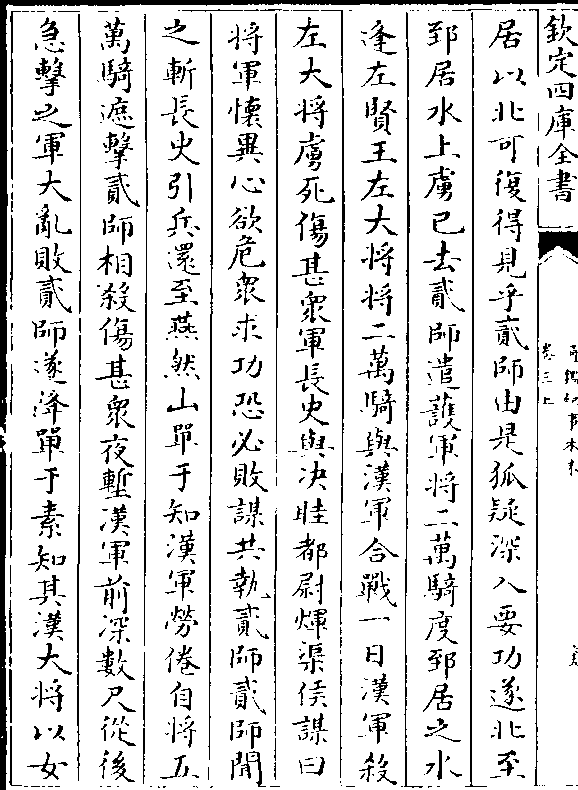 欽定四庫全書
卷三上
居以北可復得見乎貳師由是狐疑深入要功遂北至
郅居水上虜已去貳師遣護軍將二萬騎度郅居之水
逢左賢王左大將將二萬騎與漢軍合戰一日漢軍殺
左大將虜死傷甚衆軍長史與决眭都尉煇渠侯謀曰
將軍懷異心欲危衆求功恐必敗謀共執貳師貳師聞
之斬長史引兵還至燕然山單于知漢軍勞倦自將五
萬騎遮擊貳師相殺傷甚衆夜塹漢軍前深數尺從後
急擊之軍大亂敗貳師遂降單于素知其漢大將以女